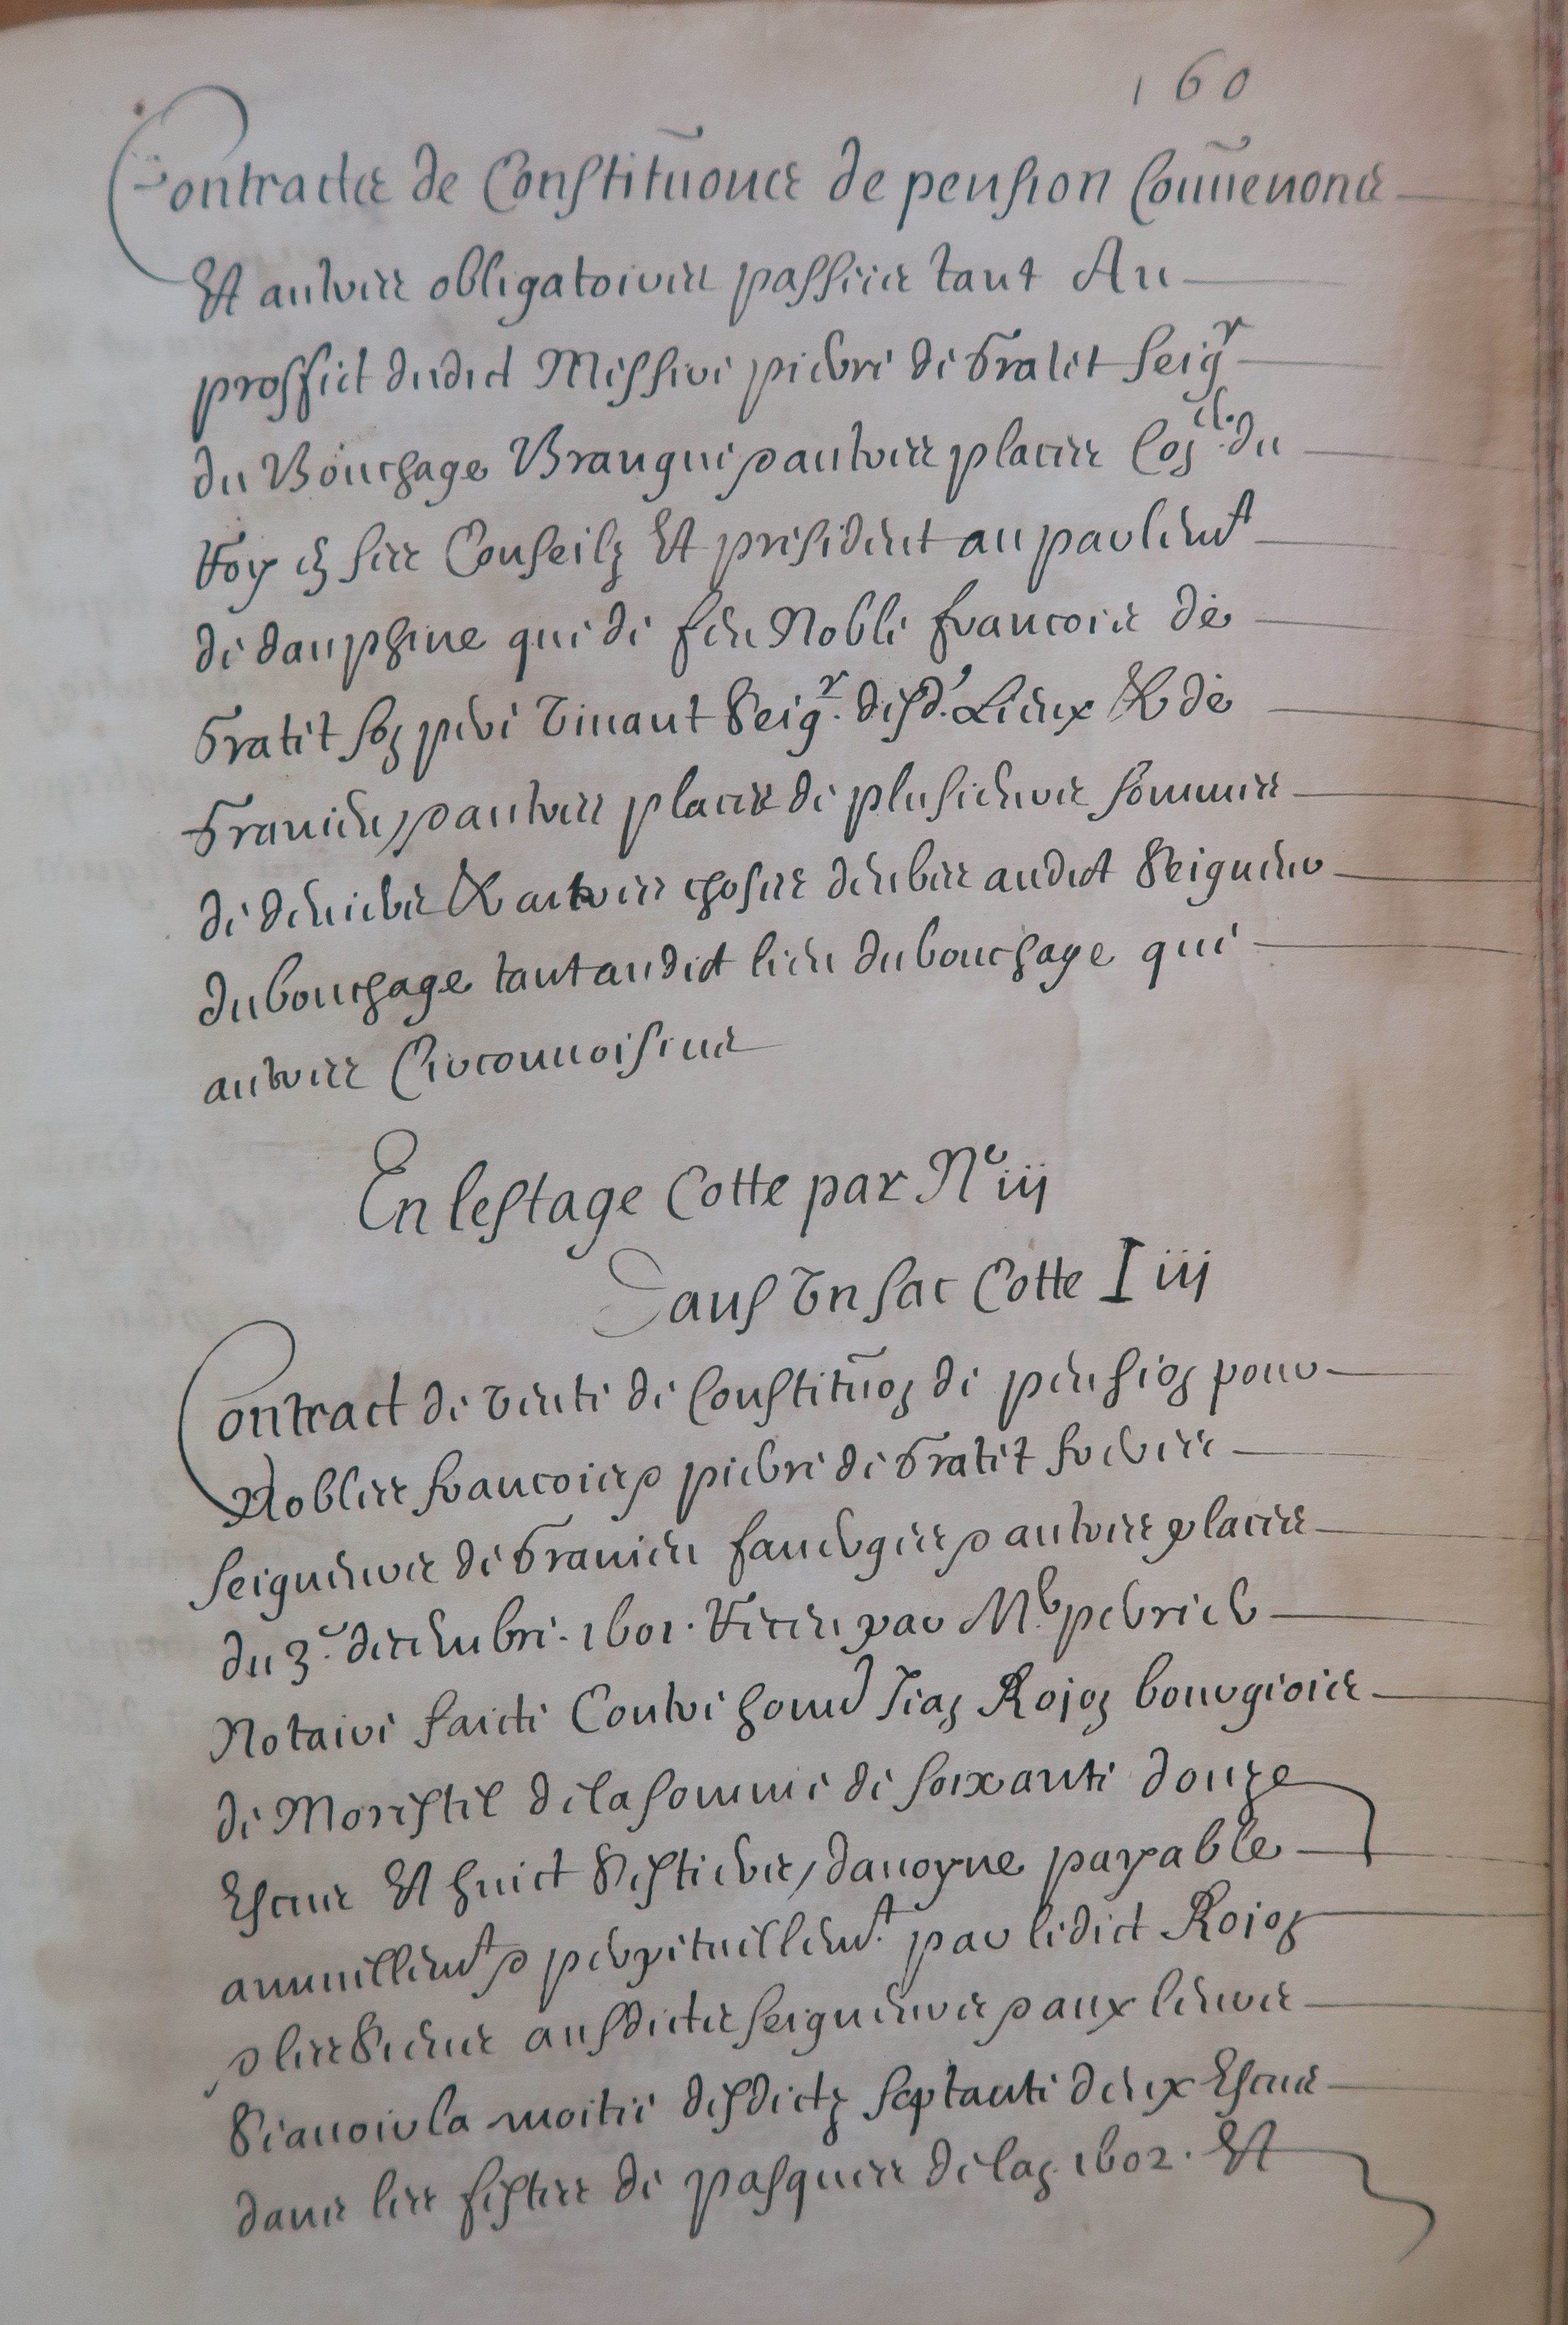 160
Contractz de Constitũons de pension Conũenons
Et autres obligatoires passees tant Au
proffict dudict Messire pierre de Gratet Seigr
du Bouchage Brangues & autres places Conler du
Roy en ses Conseilz Et president au parlemt
de dauphine que de feu Noble francois de
Gratet son pere Vivant Seigr. desd. Lieux & de
Granieu, & autres places de plusieurs sommes
de deniers & autres choses deubes audict Seigneur
du bouchage tant audict lieu du bouchage que
autres Circonvoisins
En lestage Cotte par No iij
Dans Vn sac Cotte I iij
Contract de vente de Constitũon de pension pour
Nobles francois & pierre de Gratet freres
Seigneurs de Granieu faverges & autres places
du 3e. decembre. 1601. Receu par Me.
Notaire faicte Contre honnê Jean Rojon bourgeois
de Morestel de la somme de soixante douze
Escus Et huict Sestiers, davoyne payable
annuellemt & perpetuellemt. par ledict Rojon
& les Siens ausdictz seigneurs & aux leurs
Scavoir la moitie desdictz septante deux Escus
dans les festes de pasques de lan 1602. Et